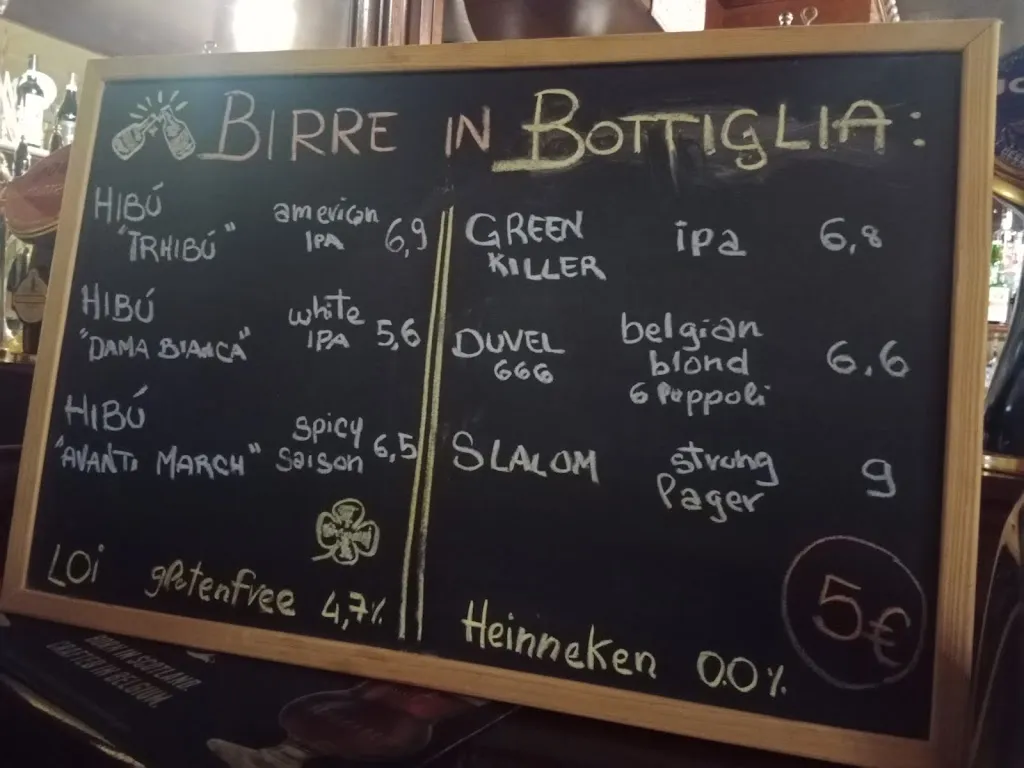 BIRRE IN BOTTIGLIA:
HIBÚ
"TRHIBÚ"
american
IPA
6,9
HIBÚ
"DAMA BIANCA"
white
IPA
5,6
HIBÚ
"AVANTI MARCH"
spicy
saison
6,5
LOI glutenfree 4,7%
GREEN
KILLER
ipa
6,8
DUVEL
666
belgian
blond
6 luppoli
6.6
SLALOM
strong
lager
9
Heinneken 0.0%
5€